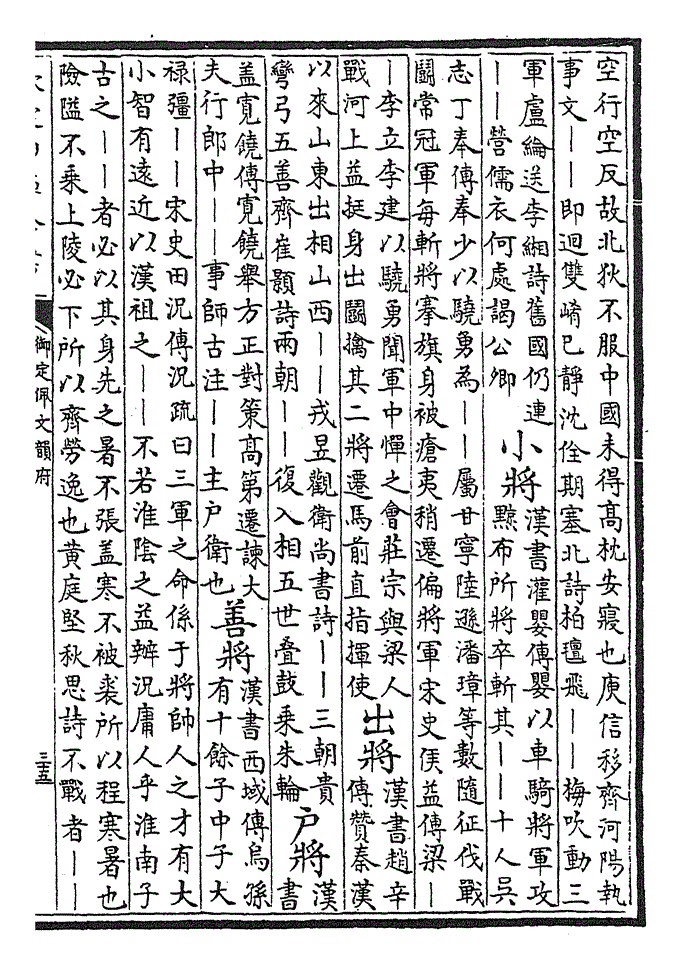 空行空反故北狄不服中國未得高枕安寢也庾信移齊河陽執
事文——即迴雙崤已靜沈佺期塞北詩柏壇飛——梅吹動三
軍盧綸送李緗詩舊國仍連
——營儒衣何處謁公卿
小將
漢書灌嬰傳嬰以車騎將軍攻
黥布所將卒斬其——十人吳
志丁奉傳奉少以驍勇為——屬甘寧陸遜潘璋等數隨征伐戰
鬭常冠軍每斬將搴旗身被瘡夷稍遷偏將軍宋史侯益傳梁—
—李立李建以驍勇聞軍中憚之會莊宗與梁人
戰河上益挺身出鬭擒其二將遷馬前直指揮使
出將
漢書趙辛
傳贊秦漢
以來山東出相山西——戎昱觀衛尚書詩——三朝貴
彎弓五善齊崔顥詩兩朝——復入相五世叠鼓乘朱輪
户將
漢
書
盖寬饒傳寬饒舉方正對策高第遷諫大
夫行郎中——事師古注——主户衛也
善將
漢書西域傳烏孫
有十餘子中子大
禄彊——宋史田況傳況疏曰三軍之命係于將帥人之才有大
小智有遠近以漢祖之——不若淮陰之益辨況庸人乎淮南子
古之——者必以其身先之暑不張盖寒不被裘所以程寒暑也
險隘不乘上陵必下所以齊勞逸也黄庭堅秋思詩不戰者——
御定佩文韻府
三五